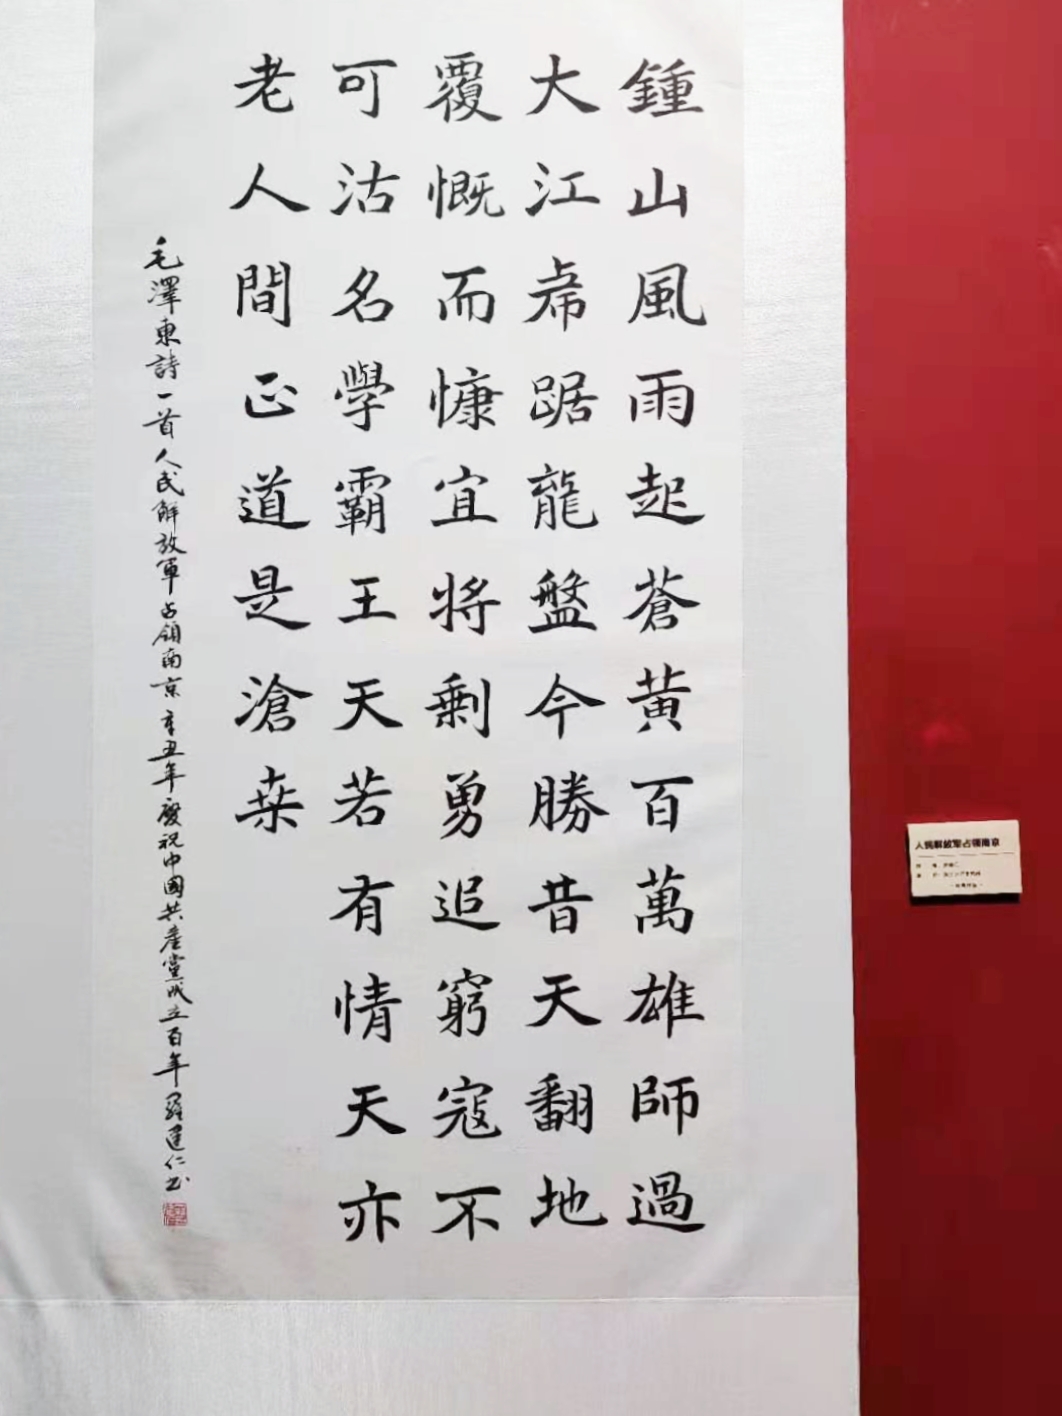 鍾山風雨起蒼黃百萬雄師過
大江虎踞龍盤今勝昔天翻地
覆慨而慷宜將剩勇追窮寇不
可沽名學霸王天若有情天亦
老人間正道是滄桑
毛澤東詩一首人民解放軍占領南京辛丑年慶祝中國共產黨成立百年羅建仁书
人民解放军占领南京